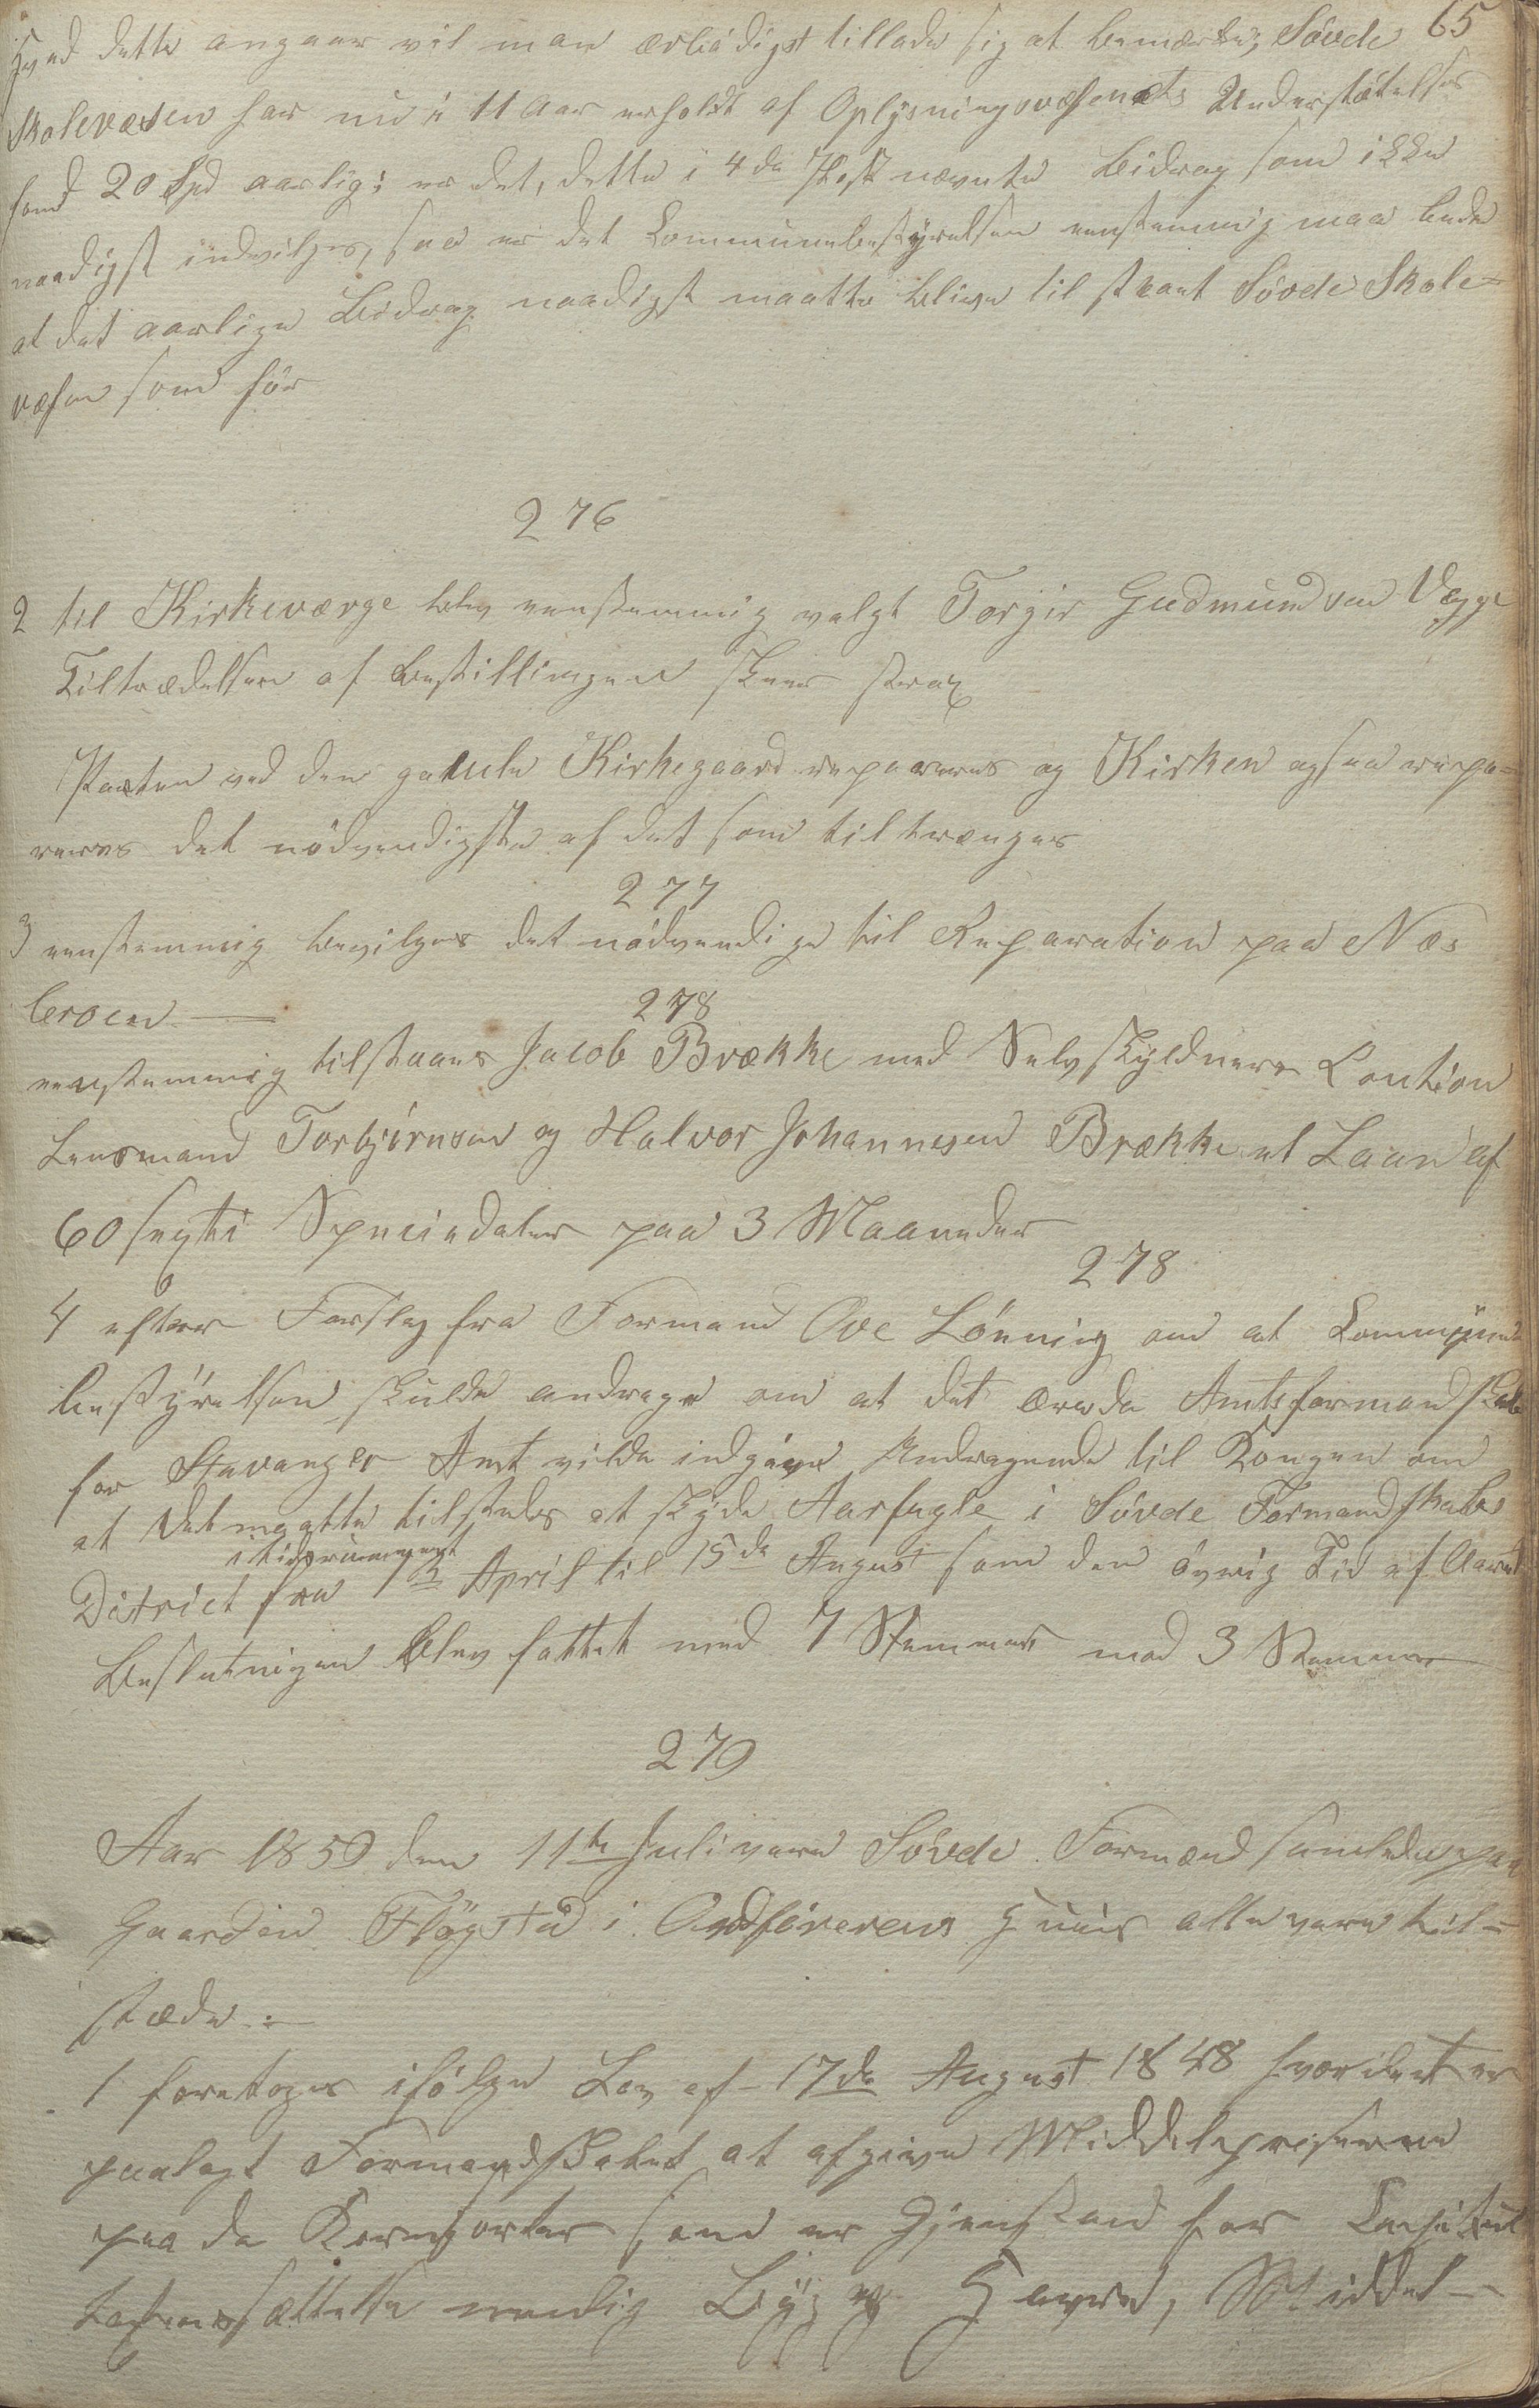 65
Hvad dette angaar vil man ærbödigst tillade sig at bemærke; Sövde
Skolevæsen har nu i 11 Aar erholdt af Oplysningsvæsenets Understötelses
fond 20 Spd aarlig; er det, dette i 4de Post nævnte Bidrag som ikke
naadigst indvilges, saa er det Communebestyrelsen eenstemmig maa bede
at det aarlige Bidrag naadigst maatte blive til staaet Sövde Skole-
væsen som för
276
2 til Kirkeværge blev eenstemmig valgt Torgir Gudmundsen Vægge
Tiltrædelsen af Bestillingen skeer strax
Porten ved den gamle Kirkegaard repareres og Kirken ogsaa repa-
reres det nödvendigste af det som tiltrænges
277
3 eenstemmig bevilges det nödvendige til Reparation paa Næs
broen —
278
eenstemmig tilstaaes Jacob Brække med Selvskyldner Caution
Lensmand Torbjörnsen og Halvor Johannesen Brække et Laan af
60 sexti Speciedaler paa 3 Maaneder
278
4 efter Forslag fra Formand Ove Lönning om at Commune
bestyrelsen skulde andrage om at det ærede Amtsformandskab
for Stavanger Amt vilde indgive Andragende til Kongen om
at det maatte tilstedes at skyde Aarfugle i Sövde Formandskabs
i tidsrummet
District fra 1ste April til 15de August som den övrig Tid af Aaret
Beslutnigen blev fattet med 7 Stemmer mod 3 Stemmer
279
Aar 1859 den 11te Juli vare Sövde Formænd samlede paa
Gaarden Flögstad i Ordförerens Huus alle vare til-
stæde.—
1 foretoges ifölge Lov af 17de August 1848 hvor det er
paalagt Formandskabet at afgive Middelpriserne
paa de Kornsorter som er Gjenstand for Capitels
taxtens ættelse nemlig Byg og Havre, Middel-